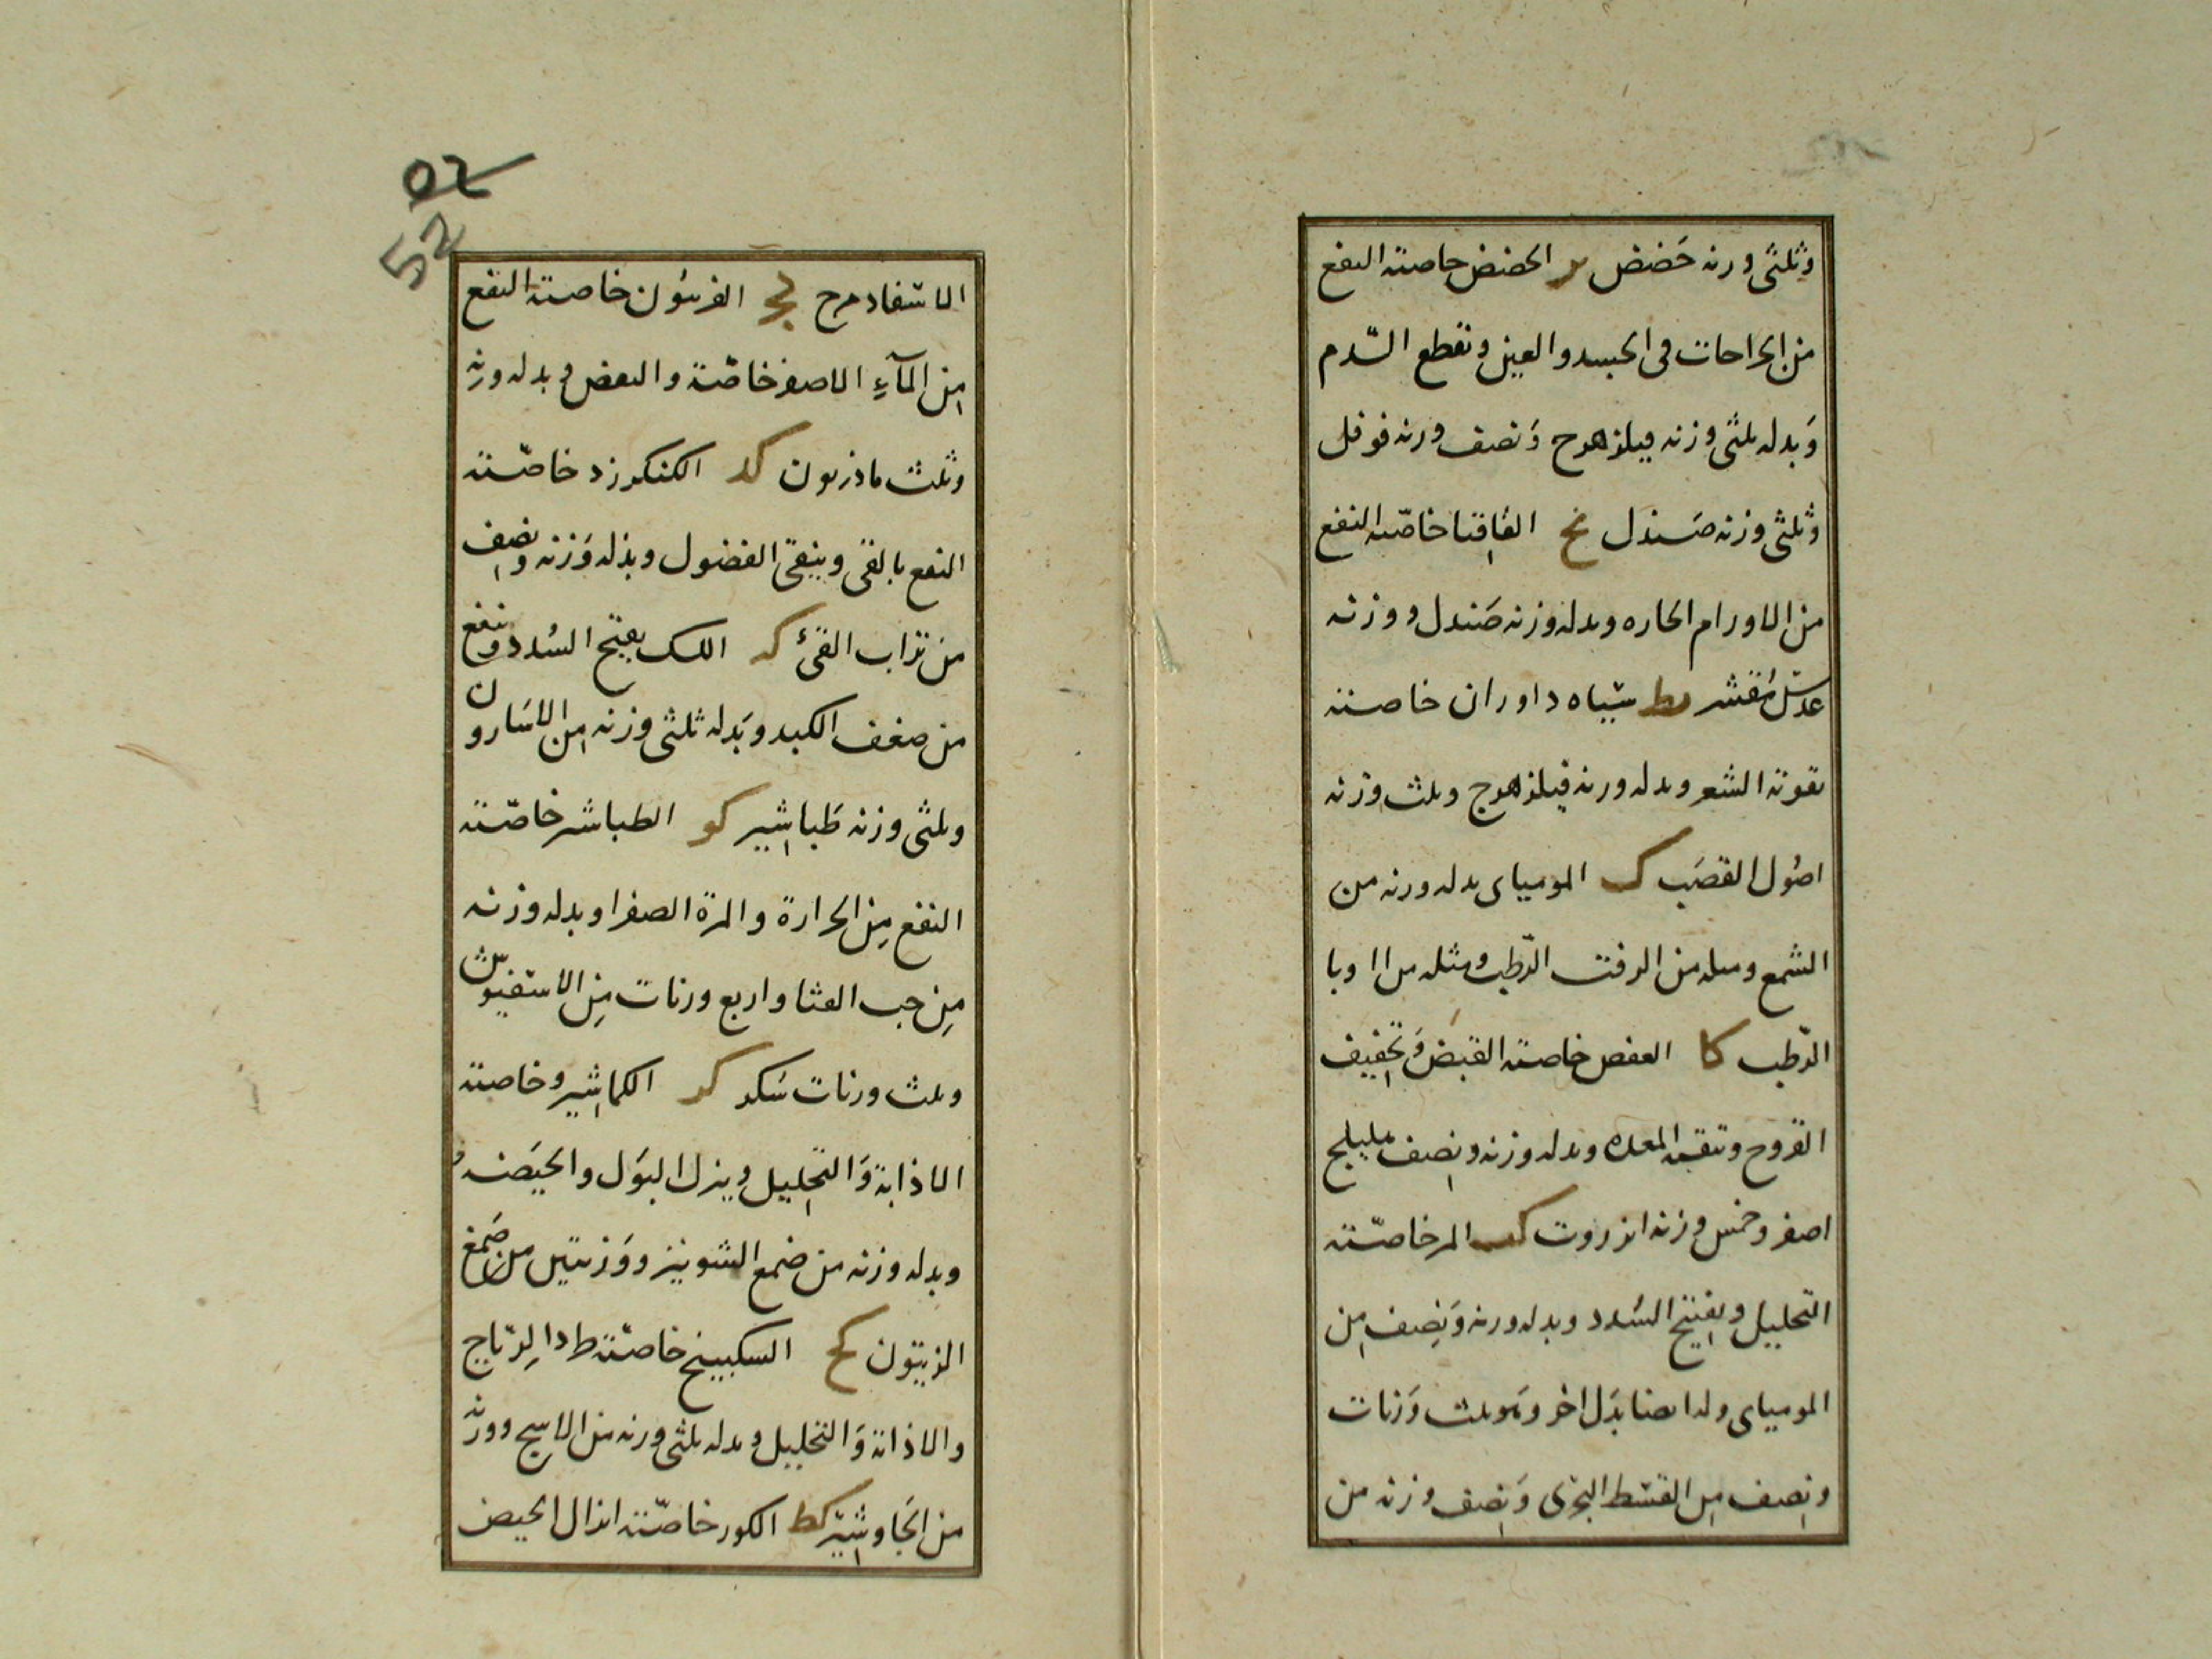 وثلثى ورنه حَضض ىر الحضض حاصته النفع
من الجراحات فى الجسد والعين وتقطع الدم
وَبدله ثلثى وزنه فيلزهرج وَنصف ورنه فوفل
وثلثى وزنه صَندل نح القاقيا خاصّته النفع
من الاورام الحاره وبدله وزنه صَندل ووزنه
عدسٌ مُقشر ىط سياه داوران خاصته
تقوية الشعر وبدله ورنه فيلزهرج وثلث وزنه
اصُول القصَب ک المومياى بدله ورنه من
الشمع ومثله من الزفت الرّطب ومثله من
الرّطب كا العفص خاصته القبض وَتجفيف
القروح وتنقية المعده وبدله وزنه ونصف هليلج
اصفر وخمس وزنه انزروت كب المر خاصّته
التحليل وبفتيح السُدد وبدله ورنه وَنصف من
المومياى ولدا ىضا بَدَل اخر وهو ثلث وَزنات
ونصف من القسط البحرى وَنصف وزنه من
الاسفادمرح كج الفربيُون خاصته النفع
من المآءِ الاصفر خاصّة والبعض وبدله ورنه
وثلث ماذريون كد الكنكرزد خاصّته
النفع بالقى وينقى الفضول وبدله وَزنه ونصف
من تراب القئ كه اللك يفتح السُدد وينفع
من ضعف الكبد وبَدله ثلثى وزنه من الاسَارون
وثلثى وزنه طَباشير كو الطباشر خاصّته
النفع مِن الحرارة والمرة الصفرا وبدله وزنه
مِن حب القثا واربع ورنات مِن الاسقيوش
وثلث ورنات سَكر كر الكماشير وخاصته
الاذابة وَالتحليل وينزل البَول والحيَضه و
وبدله وزنه من ضمع الشونيز ووَزنتين من صَمغ
الزيتون كح السكبينج خاصّته طردا لرّياح
والاذابة وَالتحليل وبدله ثلثى ورنه من الاسج وورنه
من الجَاوشيّر كط الكور خاصّته انزال الحيض
02
52